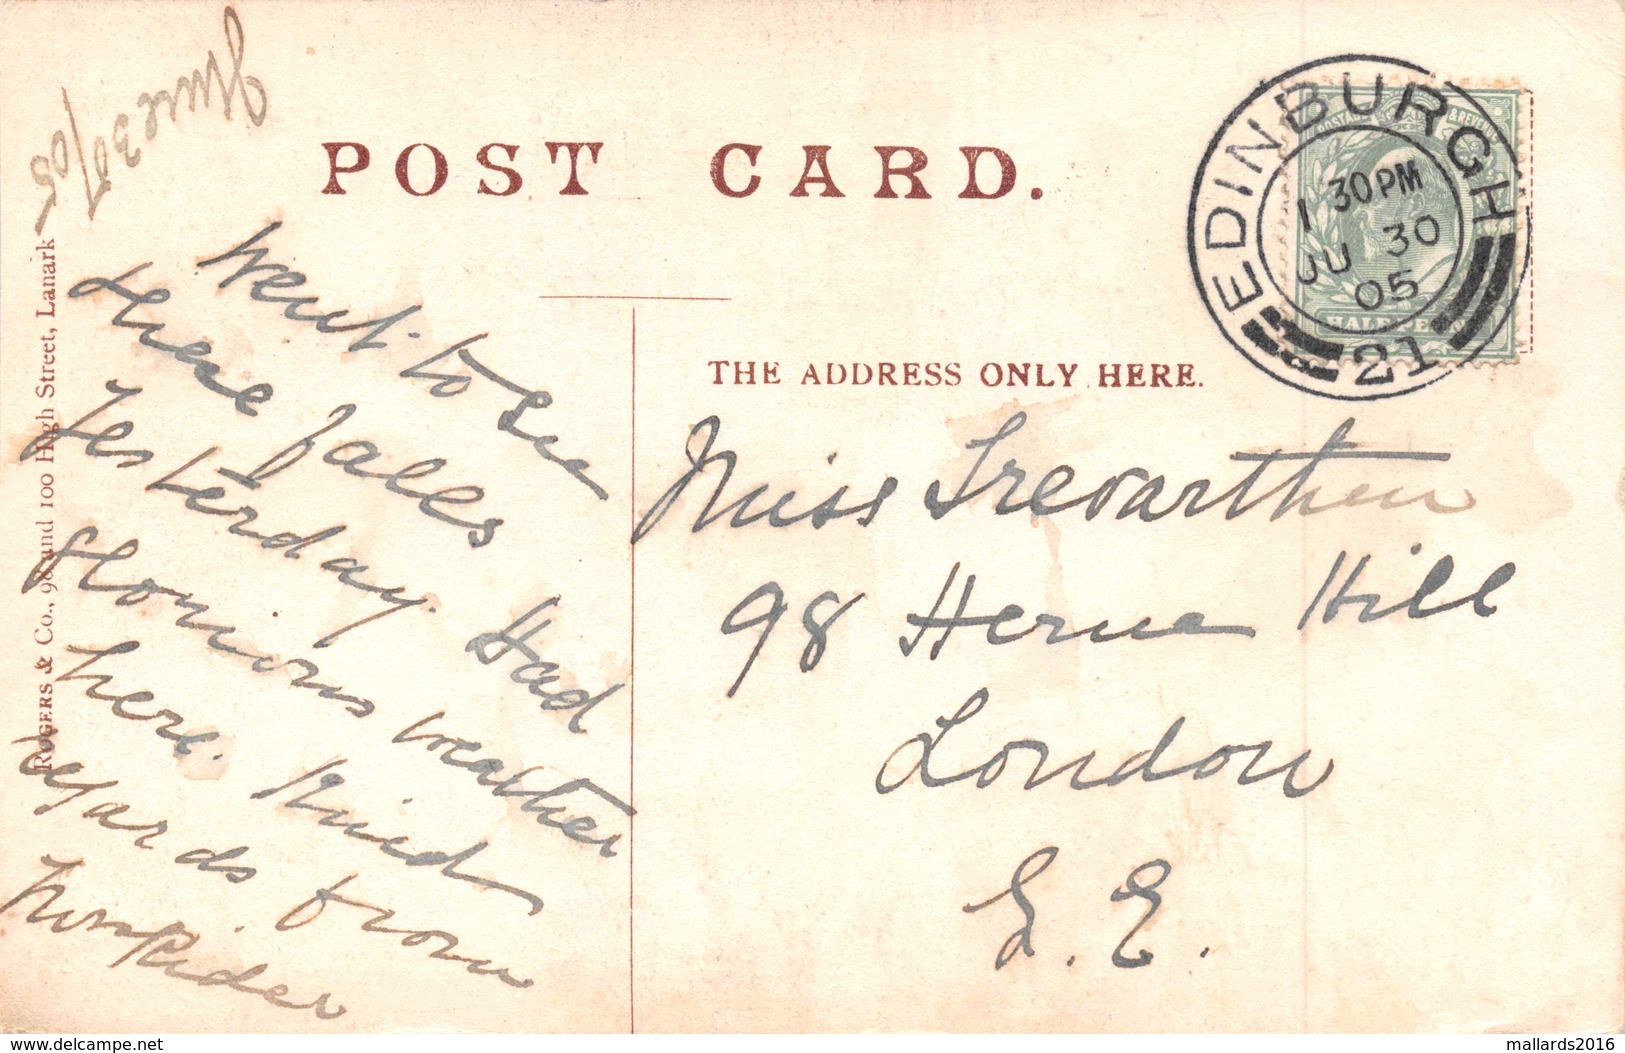 POST CARD.
EDINBURGH
1 30PM
JU 30
05
21
POSTAGE & REVENUE
HALFPENNY
June 30/05
Rogers & Co., 98 and 100 High Street, Lanark
Went to see
these falls
Yesterday. Had
Glorious weather
here. Kind
regards from
THE ADDRESS ONLY HERE.
Miss Trevarthen
98 Herne Hill
London
S.E.
delcampe.net
mallards2016